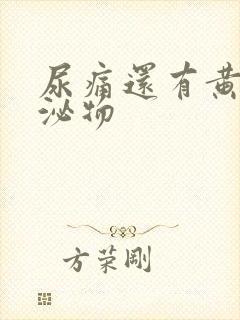 尿痛還有黃
泌物
方荣剛